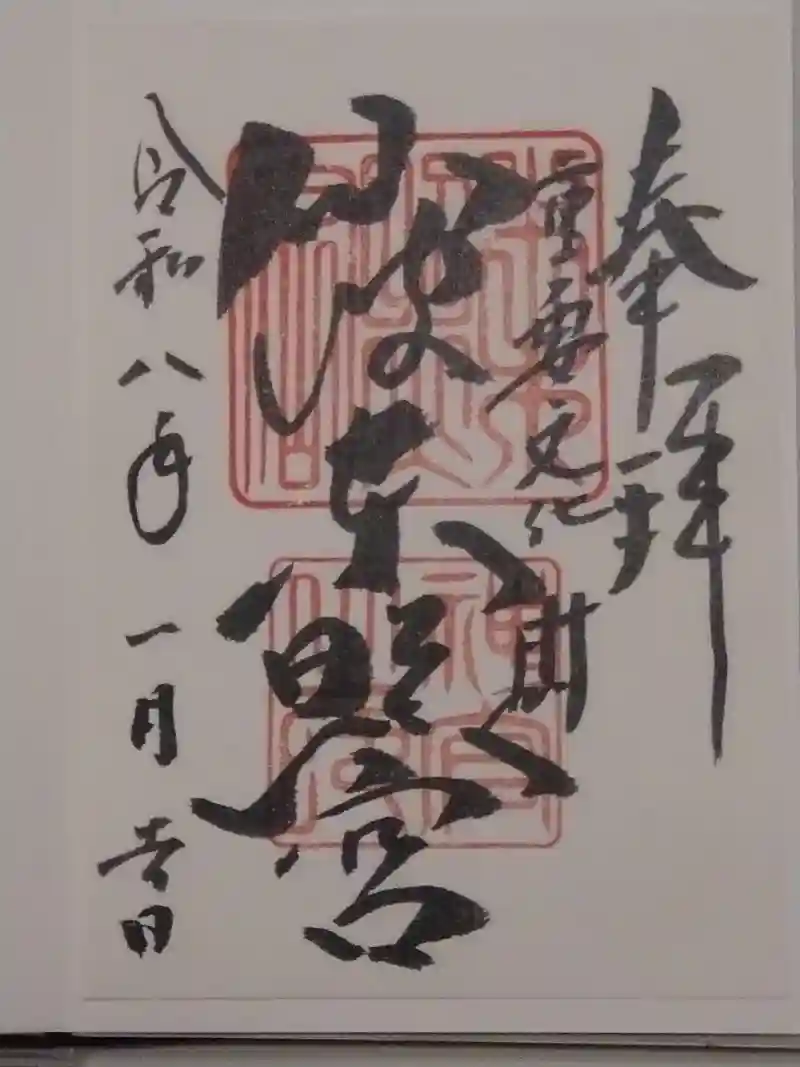 奉拝
重要文化財
仙波東照宮
令和八年 一月 吉日